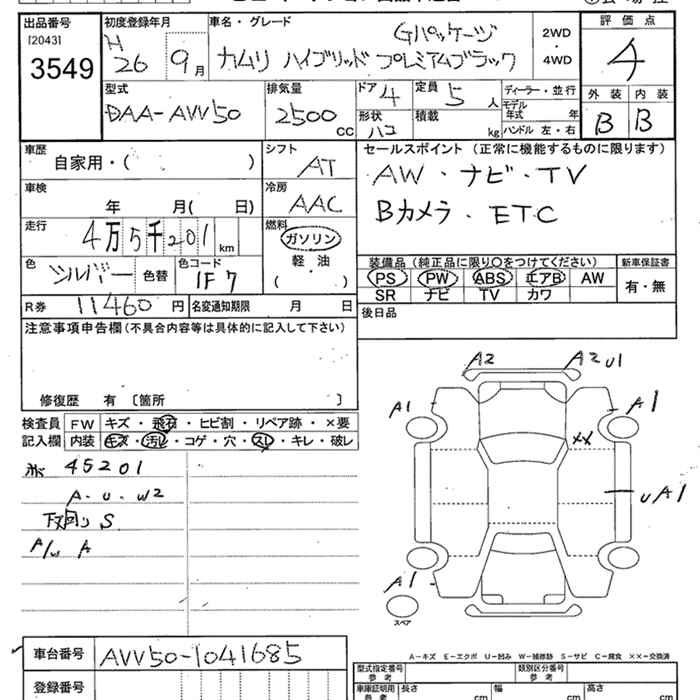 出品番号 [2043] 3549
初度登録年月 H 26 9月
車名・グレード Gパッケージ
カムリ ハイブリッド プレミアムブラック
2WD・4WD
評価点 4
外装 内装
B B
型式 DAA-AVV50
排気量 2500 CC
ドア 4
形状 ハコ
定員 5人
積載 kg
ディーラー・並行
モデル年式 年
ハンドル 左・右
車歴 自家用・( )
シフト AT
車検 年 月( 日)
冷房 AAC
走行 4万5千201km
燃料 ガソリン
軽・油
( )
色 シルバー 色替
色コード 1F7
R券 11460円
名変通知期限 月 日
セールスポイント (正常に機能するものに限ります)
AW・ナビ・TV
Bカメラ・ETC
装備品(純正品に限り○をつけてください)
PS PW ABS エアB AW
SR ナビ TV カワ
新車保証書
有・無
後日品
注意事項申告欄(不具合内容等は具体的に記入して下さい)
修復歴 有 〔箇所 〕
検査員記入欄
FW キズ・飛石・ヒビ割・リペア跡・×要
内装 キズ・汚レ・コゲ・穴・スレ・キレ・破レ
45201
A・U・W2
下回り S
A/W A
A2 A2 U1
A1 A1
××
UA1
A1
スペア
A-キズ E-エクボ U-凹み W-補修跡 S-サビ C-腐食 ××-交換済
車台番号 AVV50-1041685
登録番号
型式指定番号 参考
類別区分番号 参考
車庫証明用 参考 長さ cm 幅 cm 高さ cm